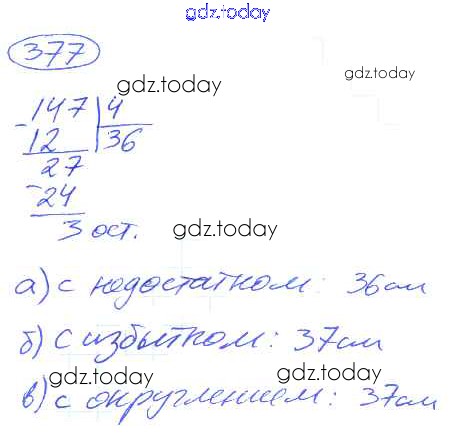 gdz.today
377
gdz.today
gdz.today
- 147 | 4
12 | 36
27
- 24
3 ост.
gdz.today
а) с недостатком: 36см
б) с избытком: 37см
gdz.today
gdz.today
в) с округлением: 37см